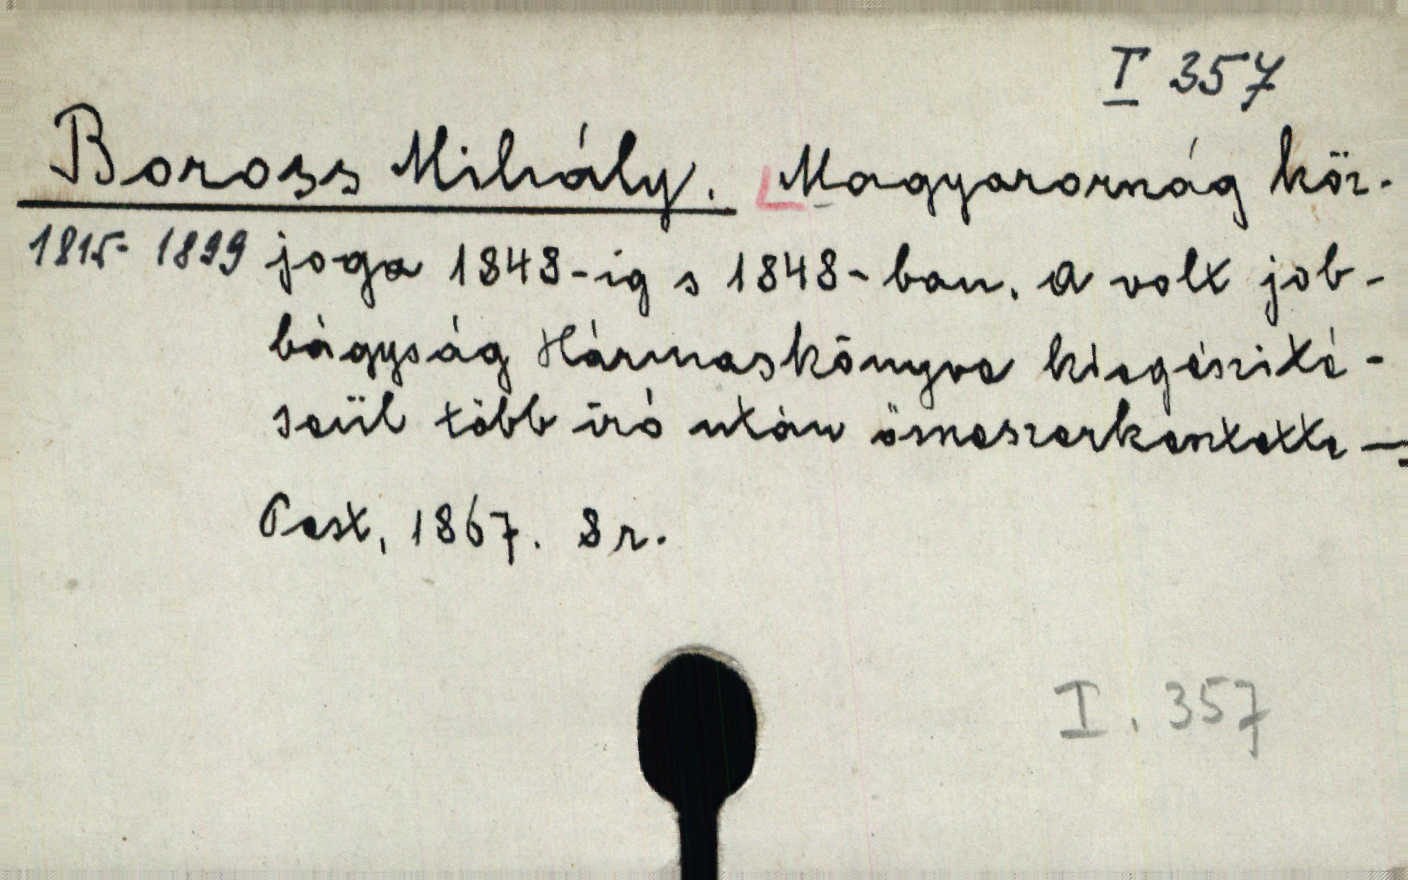 I 357
Boross Mihály. Magyarország köz-
1815-1899 joga 1848-ig s 1848-ban. A volt job-
bágyság Hármaskönyve kiegészité-
seül több iró után összeszerkesztette —
Pest, 1867. 8r.
I. 357